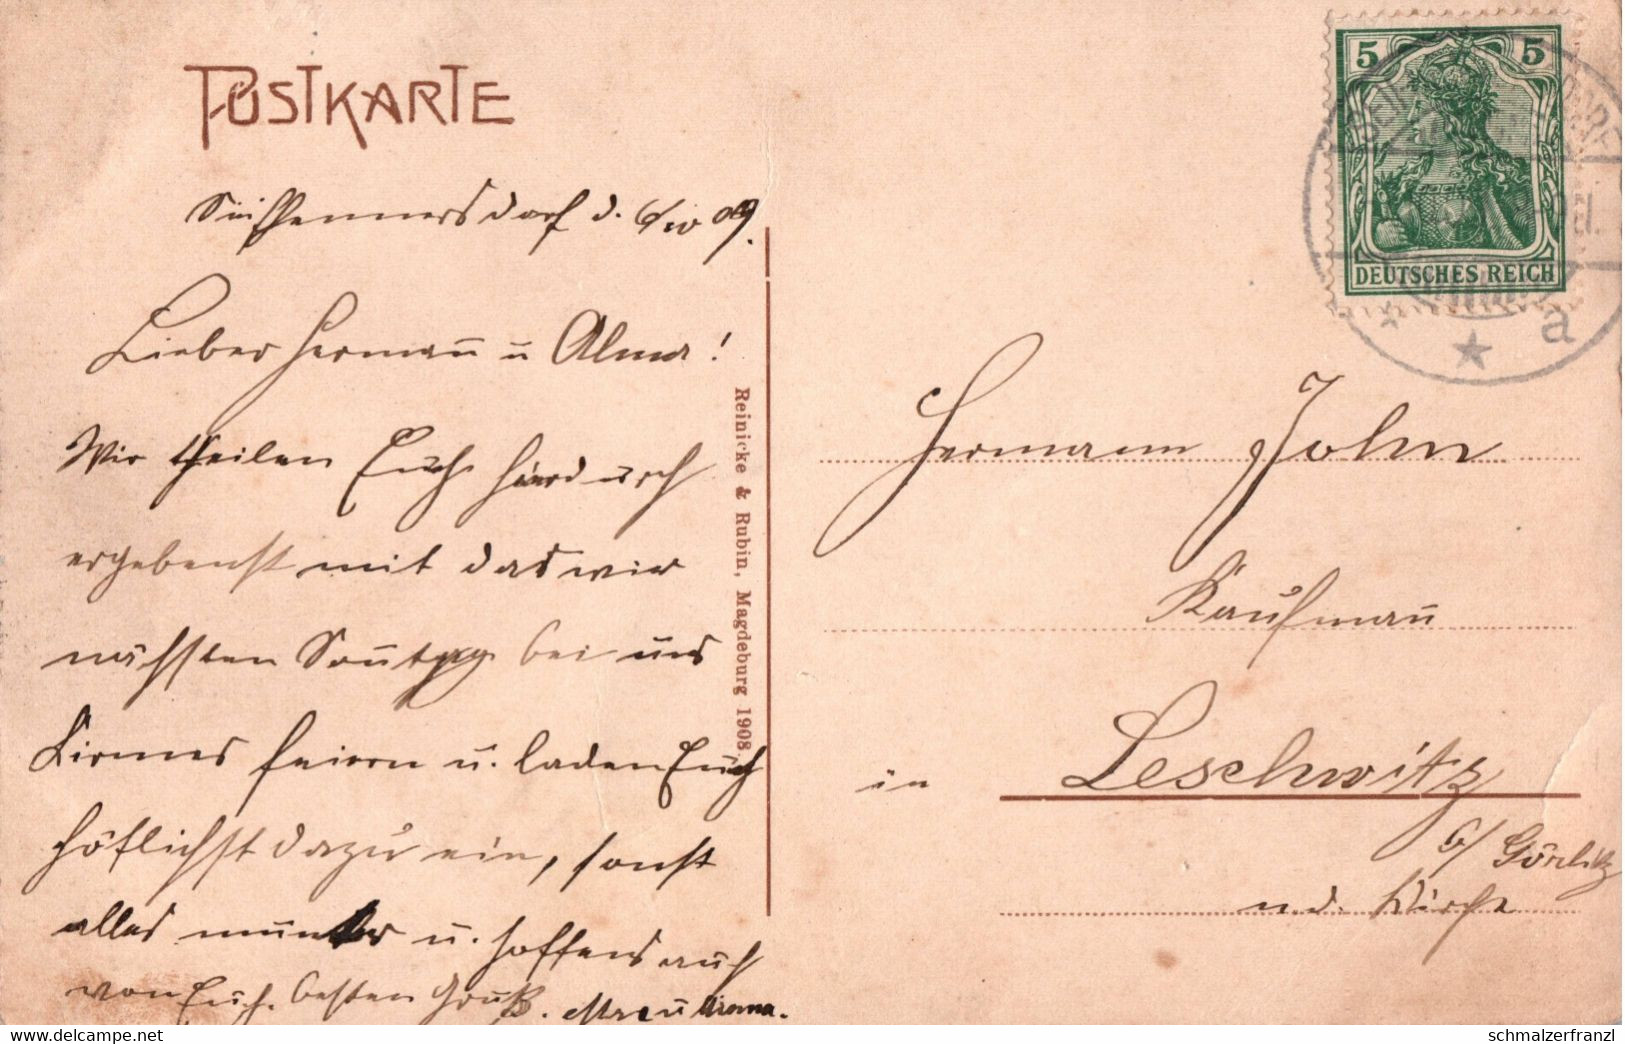 POSTKARTE
Seifhennersdorf d. 6/10 09.
Lieber Hermann u Alma!
Wir theilen Euch hierdurch
ergebenst mit das wir
nächsten Sonntag bei uns
Kirmes feiern u. laden Euch
höflichst dazu ein, sonst
alles munter u. hoffens auch
von Euch. besten Gruß.
Reinicke & Rubin, Magdeburg 1908.
5 5
DEUTSCHES REICH
a
Hermann John
Kaufmann
in Leschwitz
b/ Görlitz
n. d. Kirche
schmalzerfranzl
www.delcampe.net